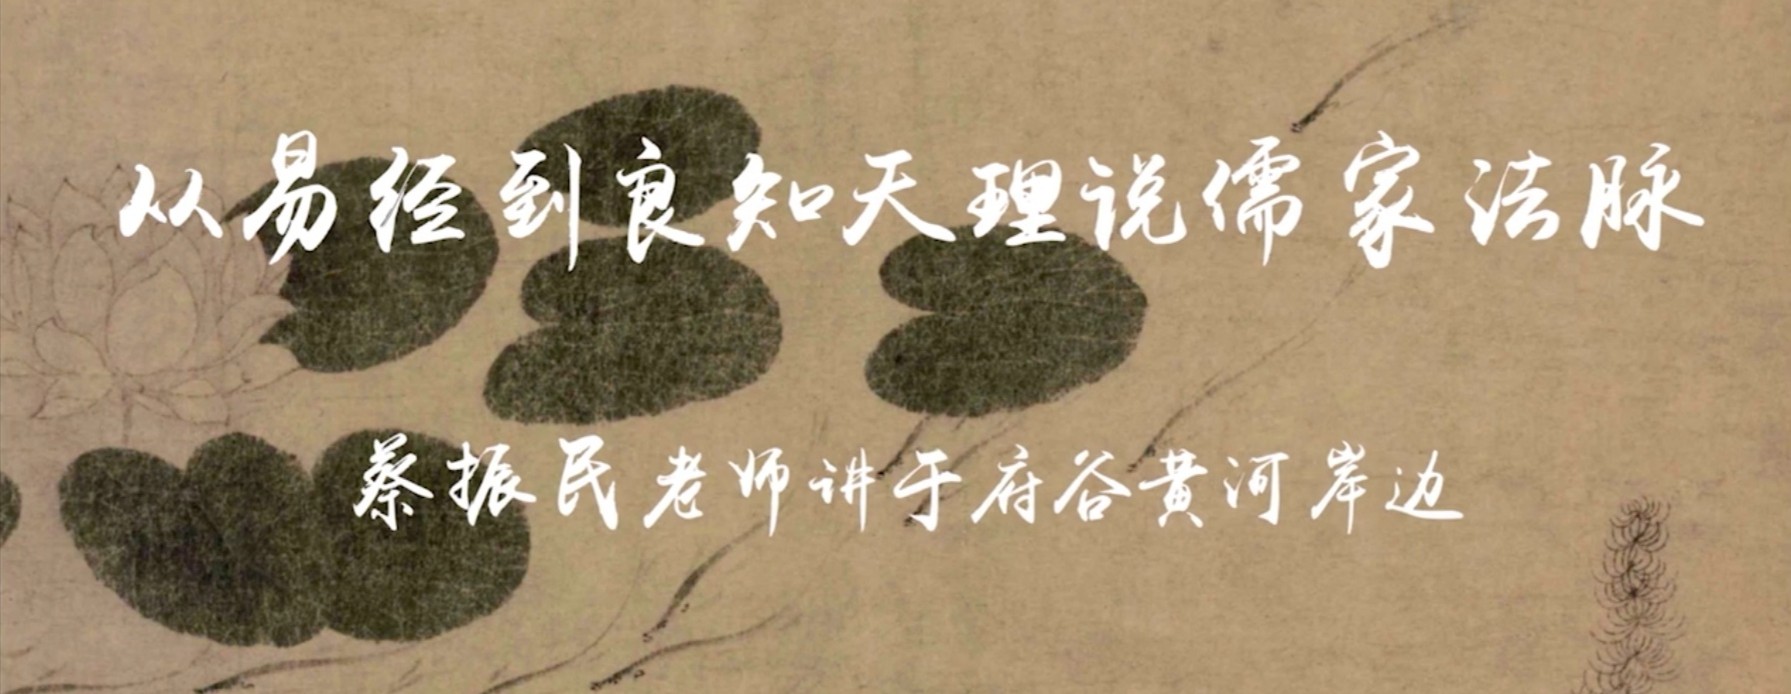 从易经到良知天理说儒家法脉
蔡振民老师讲于府谷黄河岸边